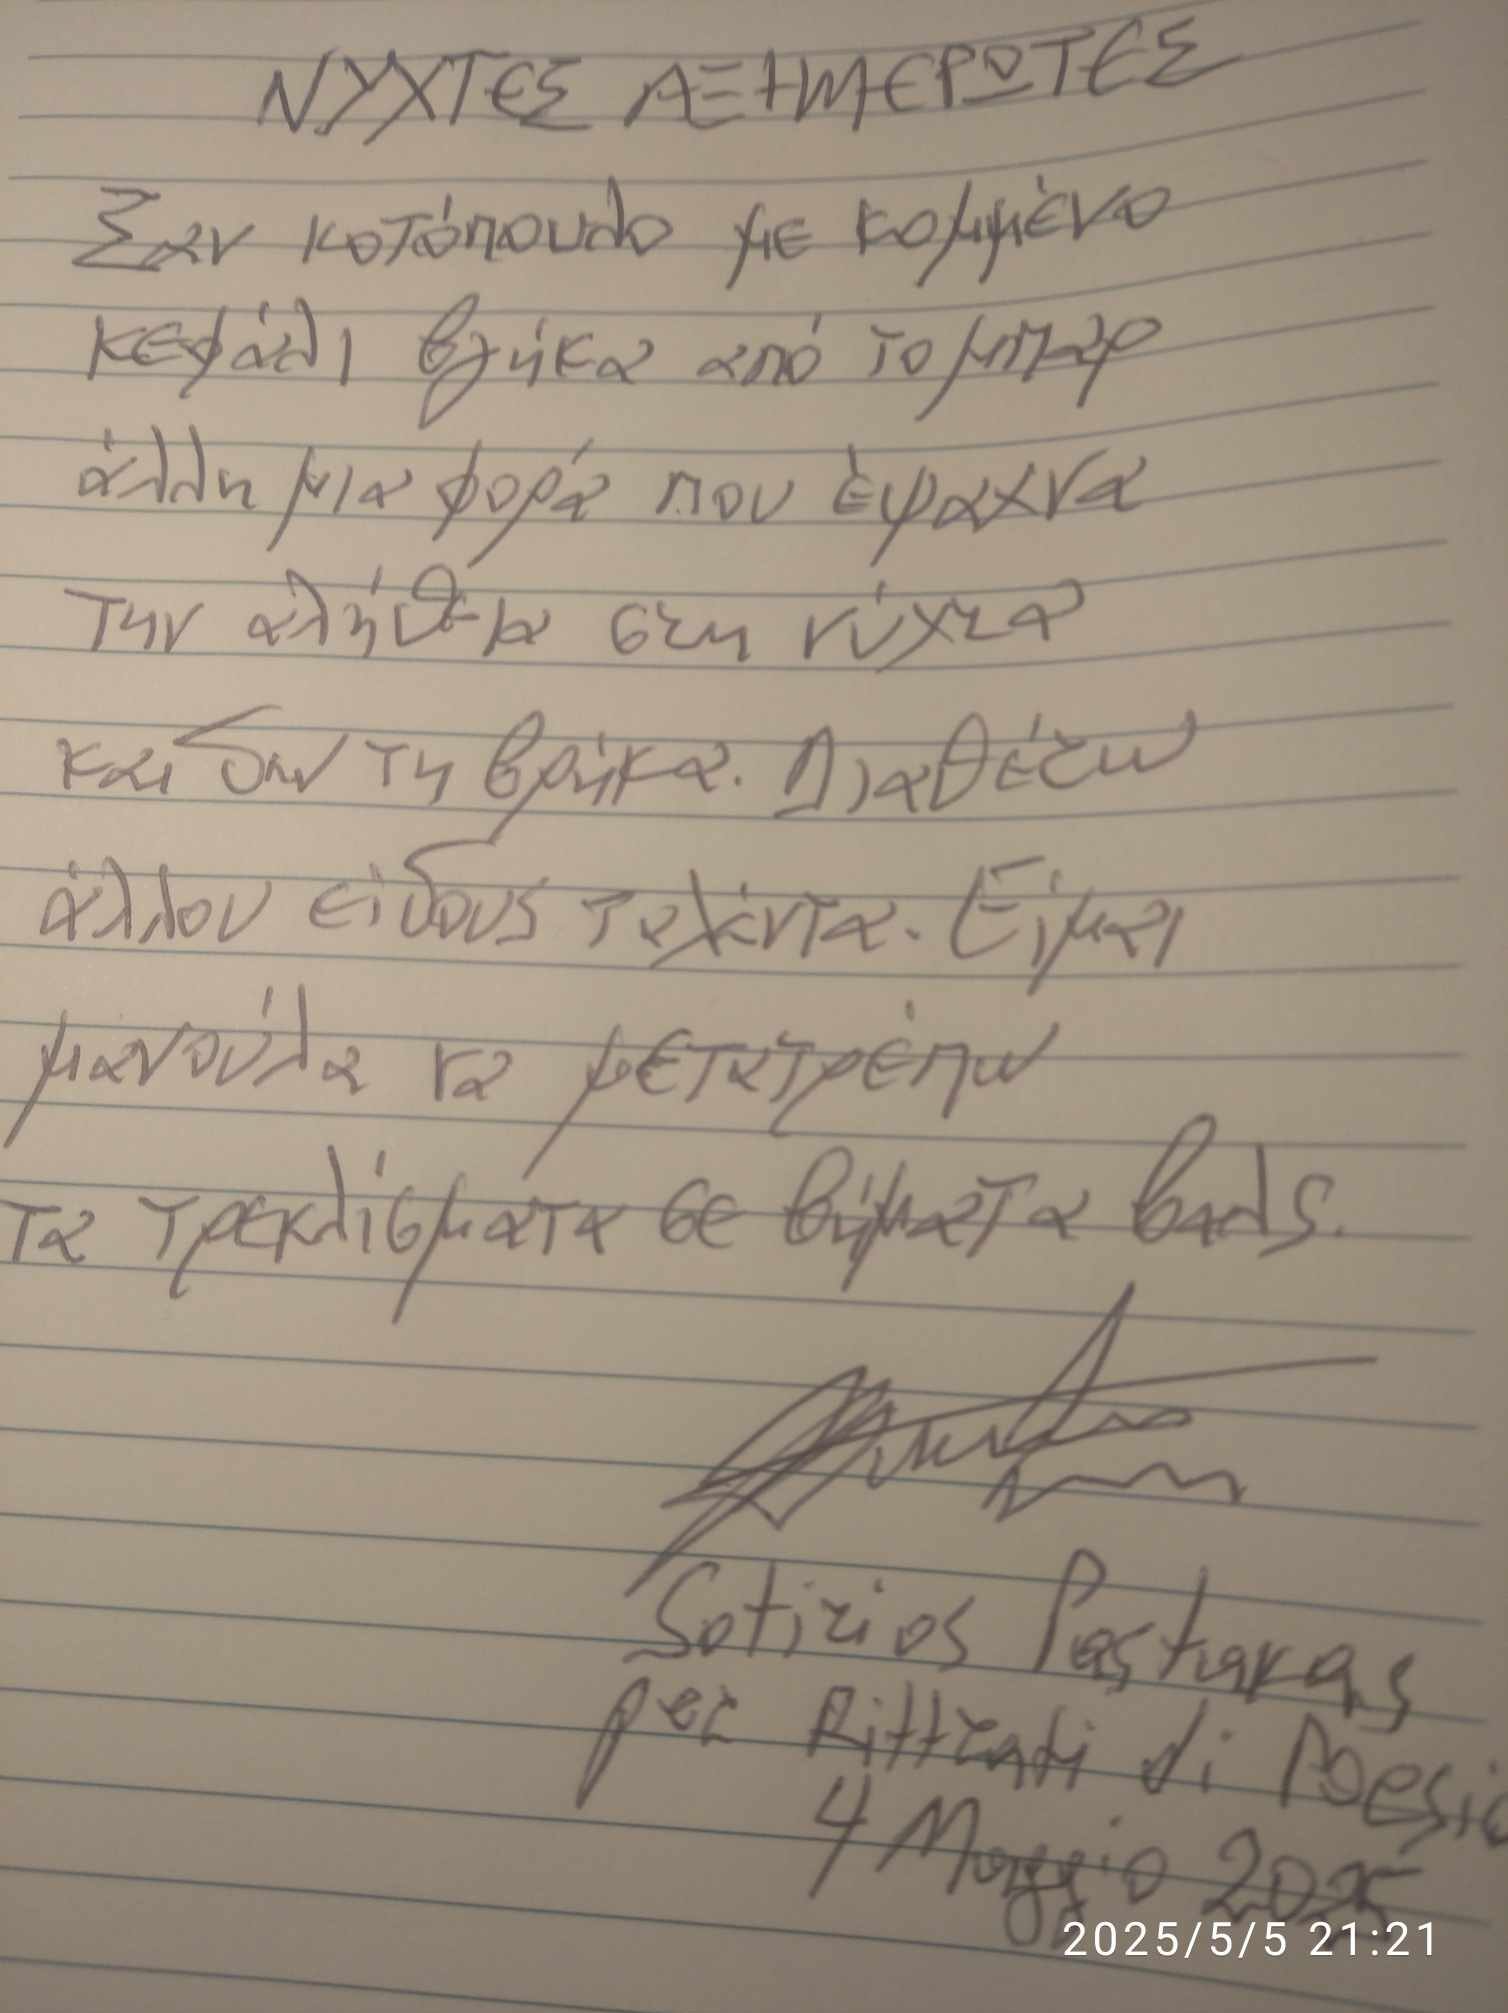 ΝΥΧΤΕΣ ΑΞΗΜΕΡΩΤΕΣ
Σαν κοτόπουλο με κομμένο
κεφάλι βγήκα από το μπαρ
άλλη μια φορά που έψαχνα
την αλήθεια στη νύχτα
και δεν τη βρήκα. Διαθέτω
άλλου είδους ταλέντα. Είμαι
μανούλα να μετατρέπω
τα τρεκλίσματα σε βήματα βαλς.
Sotirios Pastakas
per Rittrati di Poesia
4 Maggio 2025
2025/5/5 21:21